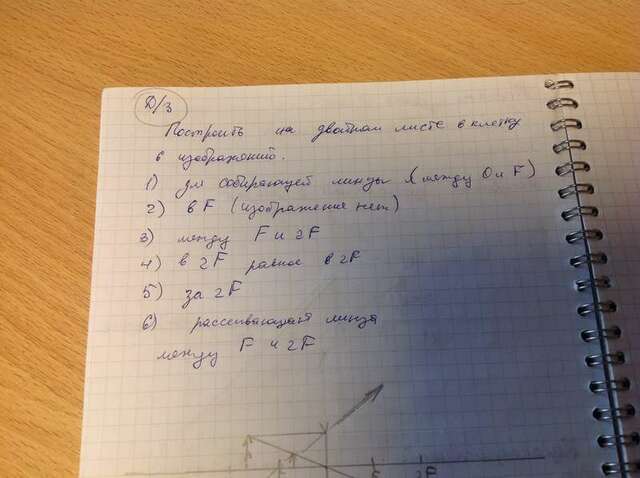 Д/З
Построить на двойном листе в клетку
6 изображений.
1) для собирающей линзы (между О и F)
2) в F (изображения нет)
3) между F и 2F
4) в 2F равное в 2F
5) за 2F
6) рассеивающая линза
между F и 2F
F 2F